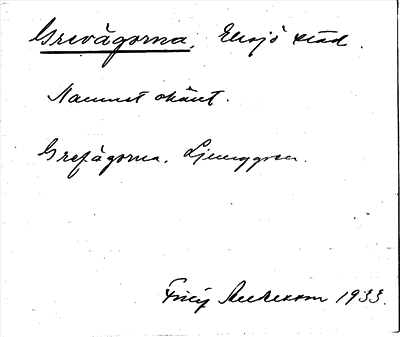 Grevågorna, Eksjö stad.
Namnet okänt.
Grefågorna. Ljunggren.
Andersson 1933.